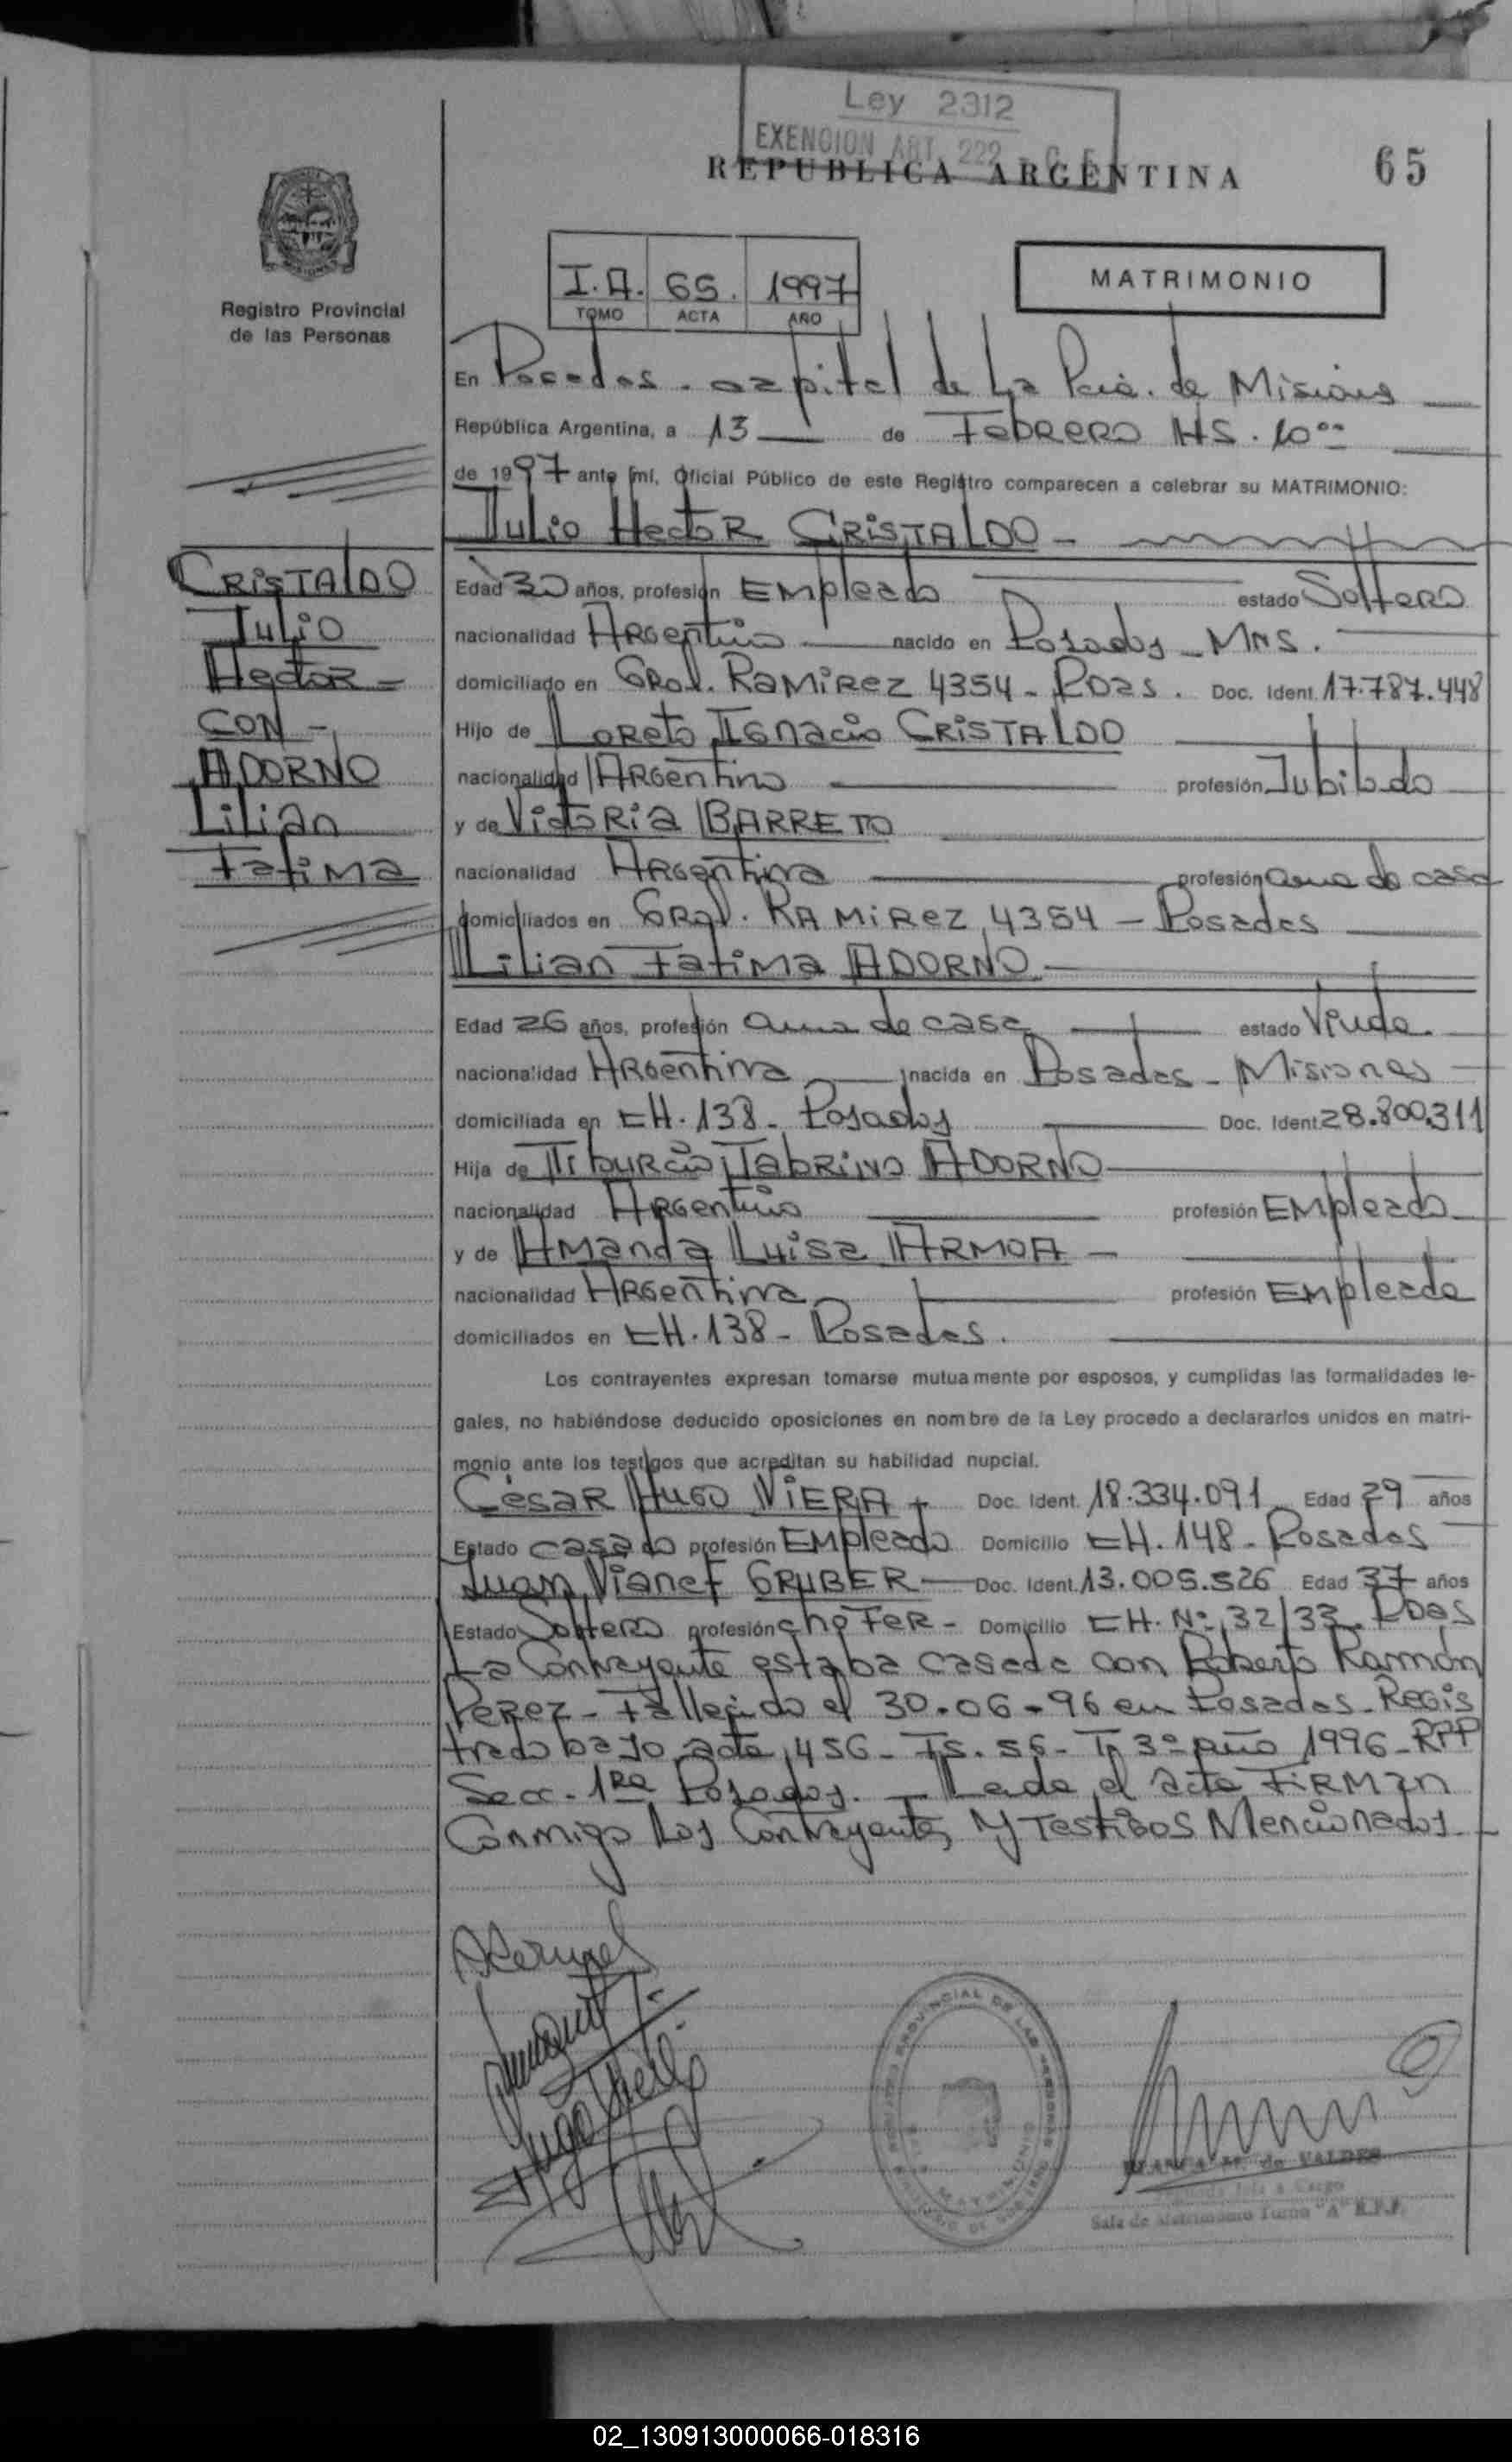 Ley 2312
EXENCION ART. 222 - C. F.
REPUBLICA ARGENTINA
65
Registro Provincial
de las Personas
I.A. 65. 1997
TOMO ACTA AÑO
MATRIMONIO
En Posadas - capital de La Pcia. de Misiones
República Argentina, a 13 de Febrero HS. 10°°
de 1997 ante mí, Oficial Público de este Registro comparecen a celebrar su MATRIMONIO:
Julio Hector CRISTALDO -
CRISTALDO
Julio
Hector =
CON -
ADORNO
Lilian
Fatima
Edad 30 años, profesión Empleado estado Soltero
nacionalidad Argentino nacido en Posadas - MNS.
domiciliado en Gral. Ramirez 4354 - Pdas. Doc. Ident. 17.787.448
Hijo de Loreto Ignacio CRISTALDO
nacionalidad Argentino profesión Jubilado
y de Victoria BARRETO
nacionalidad Argentina profesión ama de casa
domiciliados en Gral. Ramirez 4354 - Posadas
Lilian Fatima ADORNO
Edad 26 años, profesión ama de casa estado Viuda.
nacionalidad Argentina nacida en Posadas - Misiones
domiciliada en CH. 138 - Posadas Doc. Ident. 28.800.311
Hija de Tiburcio Fabrino ADORNO
nacionalidad Argentino profesión Empleado
y de Amanda Luisa ARMOA -
nacionalidad Argentina profesión Empleada
domiciliados en CH. 138 - Posadas.
Los contrayentes expresan tomarse mutuamente por esposos, y cumplidas las formalidades le-
gales, no habiéndose deducido oposiciones en nombre de la Ley procedo a declararlos unidos en matri-
monio ante los testigos que acreditan su habilidad nupcial.
César Hugo VIERA Doc. Ident. 18.334.091 Edad 29 años
Estado casado profesión Empleado Domicilio CH. 148 - Posadas
Juan Vianef GRUBER Doc. Ident. 13.005.526 Edad 37 años
Estado Soltero profesión choFer - Domicilio CH. Nº 32/33. Pdas
La Contrayente estaba casada con Roberto Ramón
Perez - Fallecido el 30-06-96 en Posadas - Regis
trado bajo acta 456 - Fs. 56 - Tº 3º año 1996 - RPP
Secc. 1ra Posadas. - Leida el acta Firman
Conmigo Los Contrayentes y Testigos Mencionados
REGISTRO PROVINCIAL DE LAS PERSONAS
BLANCA M. de VALDES
Sala de Matrimonio Turno "A" R.P.P.
02_130913000066-018316